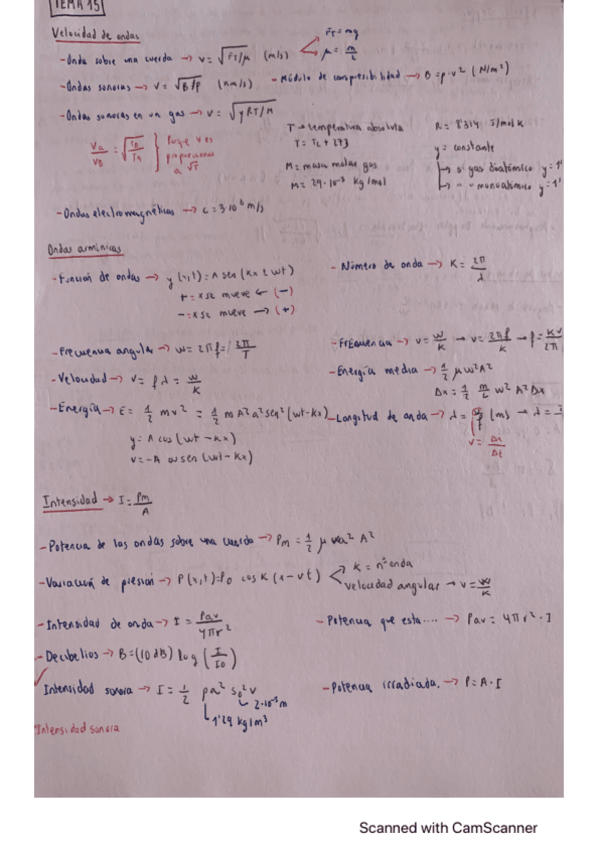 TEMA 15
Velocidad de ondas
- Onda sobre una cuerda → v = √FT/μ (m/s)
FT = mg
μ = m/L
- Ondas sonoras → v = √B/ρ (m/s)
- Módulo de compresibilidad → B = ρ·v² (N/m²)
- Ondas sonoras en un gas → v = √γRT/M
va/vB = √
Porque v es proporcional a √T
T = temperatura absoluta
T = Tc + 273
M = masa molar gas
M = 29·10⁻³ kg/mol
R = 8'314 J/mol K
y = constante
gas diatómico y = 1'
monoatómico y = 1'
- Ondas electromagnéticas → c = 3·10⁸ m/s
Ondas armónicas
- Función de ondas → y(x,t) = A sen (Kx ± wt)
+ = x se mueve ← (-)
- = x se mueve → (+)
- Número de onda → K = 2π/λ
- Frecuencia angular → w = 2πf = 2π/T
- Frecuencia → v = w/K → v = 2πf/K → f = Kv/2π
- Velocidad → v = f λ = w/K
- Energía media → 1/2 μ w² A²
Δx = 1/2 m/L w² A² Δx
- Energía → E = 1/2 m v² = 1/2 m A² a² sen² (wt - kx)
- Longitud de onda → λ = (m) → λ =
y = A cos (wt - Kx)
v = Δx/Δt
v = -A w sen (wt - Kx)
Intensidad → I = Pm/A
- Potencia de las ondas sobre una cuerda → Pm = 1/2 μ v w² A²
- Variación de presión → P(x,t) = P₀ cos K (x - vt)
K = nº onda
velocidad angular → v = w/K
- Intensidad de onda → I = Pav/4πr²
- Potencia que esta.... → Pav = 4πr² · I
- Decibelios → B = (10 dB) log (I/I₀)
Intensidad sonora → I = 1/2 ρ w² s₀² v
2·10⁻⁵ m
1'29 kg/m³
- Potencia irradiada. → P = A · I
*Intensidad sonora
Scanned with CamScanner